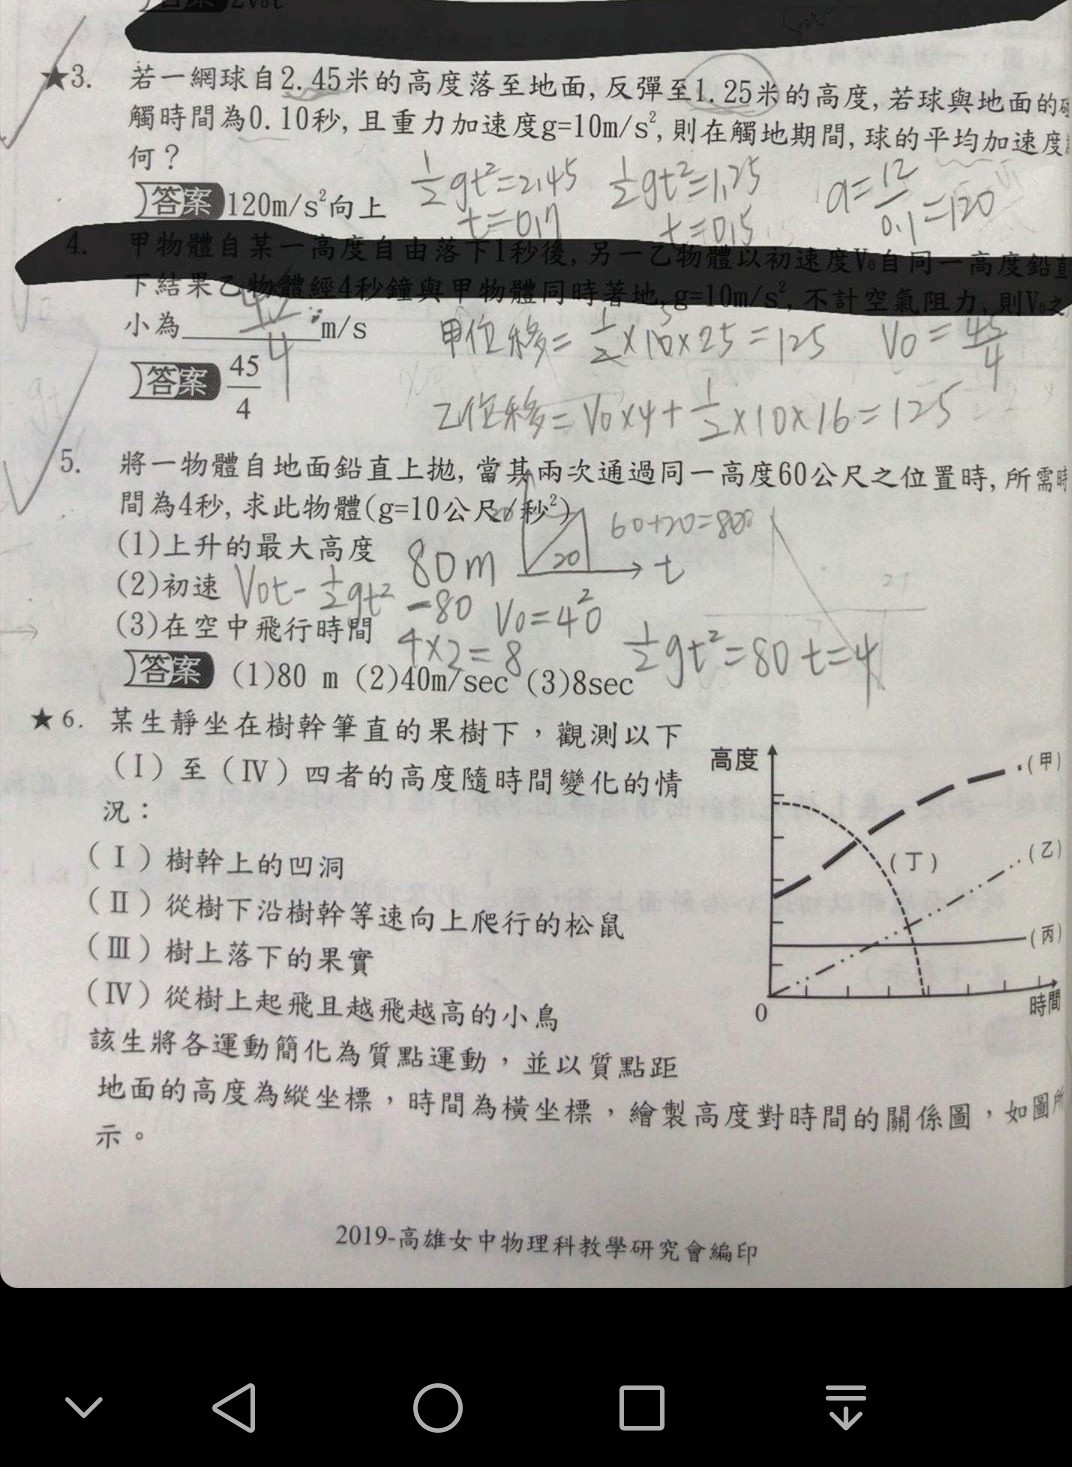 答案 2v₀t
★3. 若一網球自2.45米的高度落至地面,反彈至1.25米的高度,若球與地面的
觸時間為0.10秒,且重力加速度g=10m/s²,則在觸地期間,球的平均加速度
何?
½gt²=2.45 ½gt²=1.25 a=12/0.1=120
答案 120m/s²向上
t=0.7 t=0.5
4. 甲物體自某一高度自由落下1秒後,另一乙物體以初速度V₀自同一高度鉛直
下結果乙物體經4秒鐘與甲物體同時著地,g=10m/s²,不計空氣阻力,則V₀之
小為 45/4 m/s
甲位移=½×10×25=125 V₀=45/4
答案 45/4
乙位移=V₀×4+½×10×16=125
5. 將一物體自地面鉛直上拋,當其兩次通過同一高度60公尺之位置時,所需時
間為4秒,求此物體(g=10公尺/秒²)
20 60+20=80
(1)上升的最大高度 80m
(2)初速 V₀t-½gt² -80 V₀=40
(3)在空中飛行時間 4×2=8 ½gt²=80 t=4
答案 (1)80 m (2)40m/sec (3)8sec
★6. 某生靜坐在樹幹筆直的果樹下,觀測以下
(Ⅰ)至(Ⅳ)四者的高度隨時間變化的情
況:
(Ⅰ)樹幹上的凹洞
(Ⅱ)從樹下沿樹幹等速向上爬行的松鼠
(Ⅲ)樹上落下的果實
(Ⅳ)從樹上起飛且越飛越高的小鳥
該生將各運動簡化為質點運動,並以質點距
地面的高度為縱坐標,時間為橫坐標,繪製高度對時間的關係圖,如圖所
示。
高度
(甲)
(丁)
(乙)
(丙)
0
時間
2019-高雄女中物理科教學研究會編印